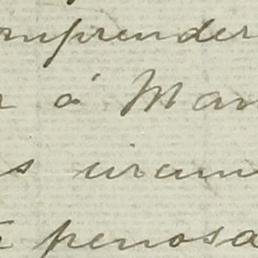 omprender
r á Man
s iram
penosa